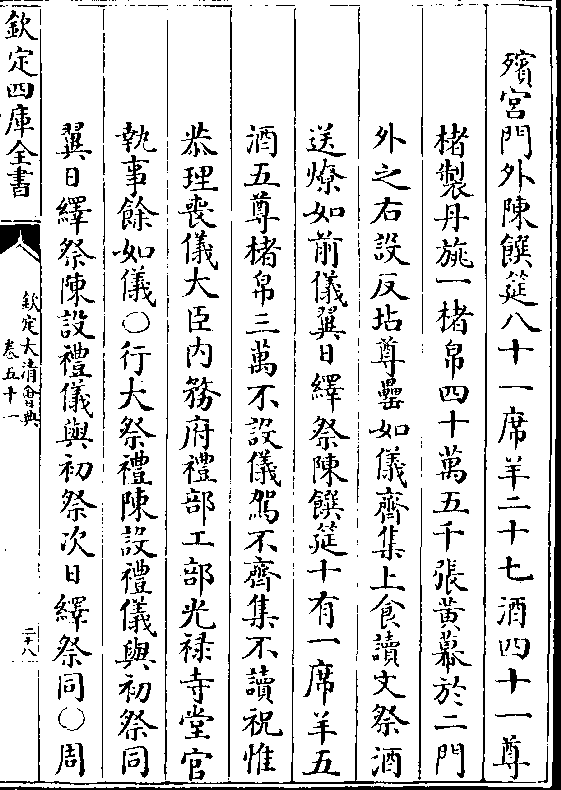 殯宮門外陳饌筵八十一席羊二十七酒四十一尊
楮製丹旐一楮帛四十萬五千張黃幕於二門
外之右設反坫尊罍如儀齊集上食讀文祭酒
送燎如前儀翼日繹祭陳饌筵十有一席羊五
酒五尊楮帛三萬不設儀駕不齊集不讀祝惟
恭理喪儀大臣内務府禮部工部光祿寺堂官
執事餘如儀〇行大祭禮陳設禮儀與初祭同
翼日繹祭陳設禮儀與初祭次日繹祭同〇周
欽定四庫全書
欽定大清會典
卷五十一
三十八